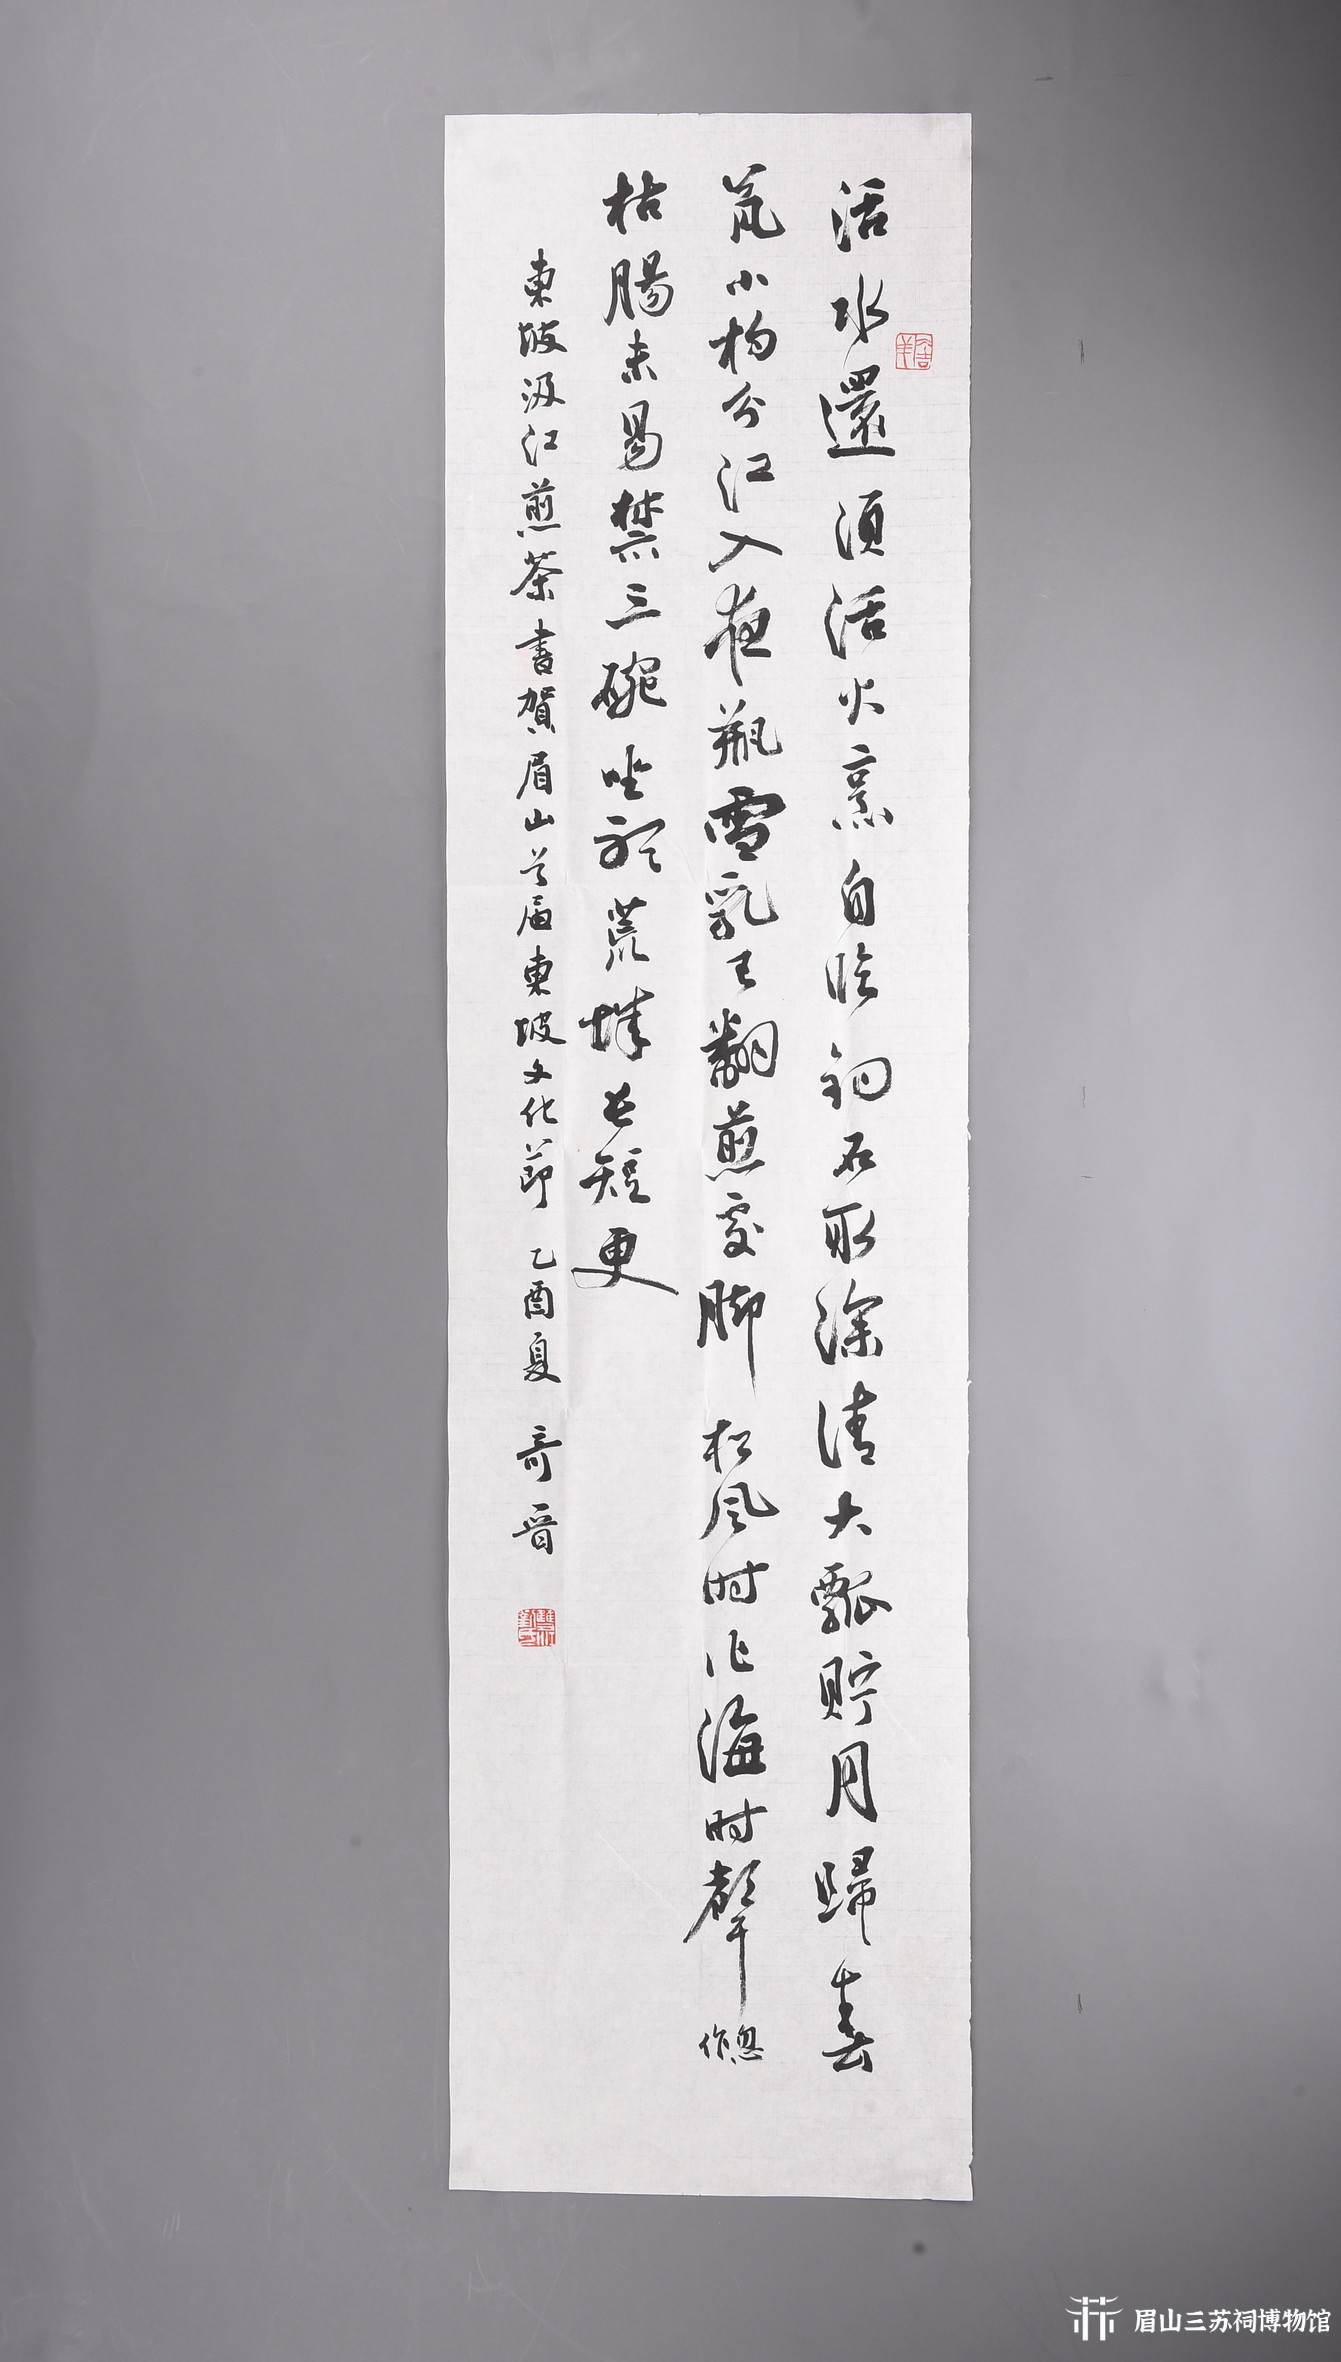 活水還須活火烹自臨釣石取深清大瓢貯月歸春
瓮小杓分江入夜瓶雪乳已翻煎處脚松风时作海时聲
忽作
枯腸未易禁三碗坐聽荒城長短更
東坡汲江煎茶書賀眉山首届東坡文化節 乙酉夏 奇晋
眉山三苏祠博物馆